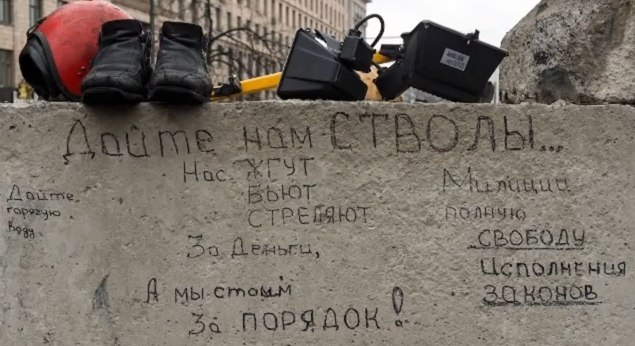 Дайте нам СТВОЛЫ...
Нас ЖГУТ
БЬЮТ
СТРЕЛЯЮТ
За Деньги,
А мы стоим
За ПОРЯДОК!
Дайте
горячую
воду
Милиции
полную
СВОБОДУ
Исполнения
ЗАКОНОВ